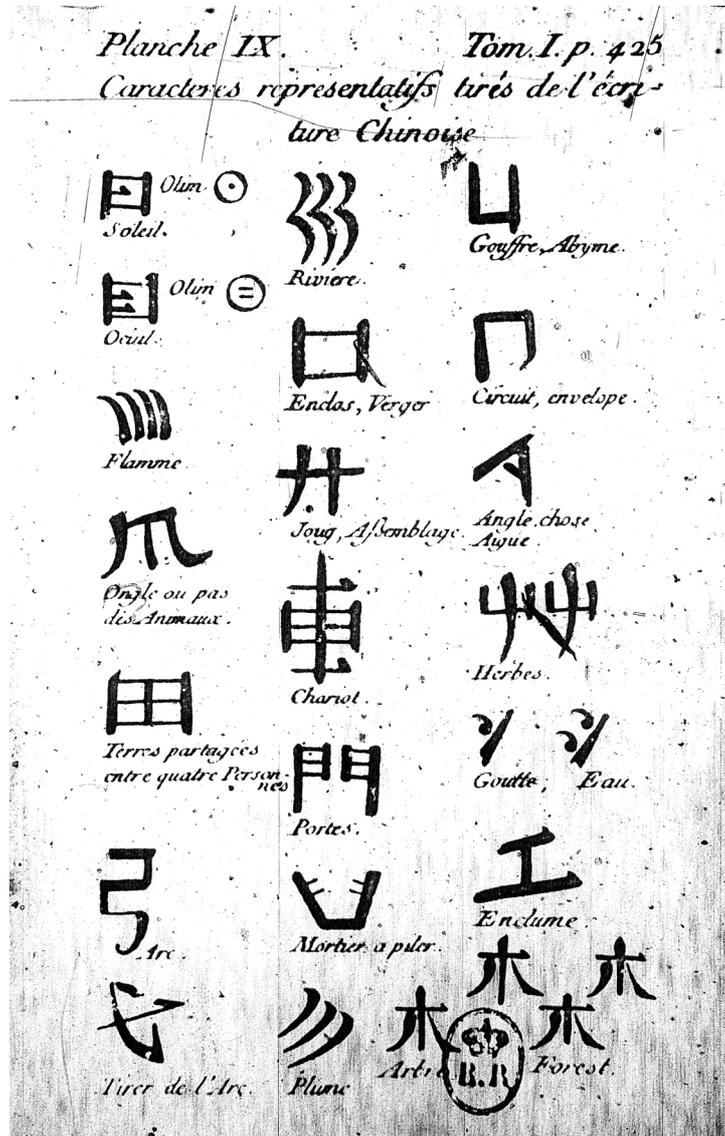 Planche IX. Tom. I. p. 425
Caracteres representatifs tirés de l'écri-
ture Chinoise
日 Olim
Soleil.
目 Olim
Oeuil.
巛
Flamme
爪
Ongle ou pas
des Animaux.
田
Terres partagées
entre quatre Person-
nes
弓
Arc.
弋
Tirer de l'Arc.
Riviere.
口
Enclos, Verger
廾
Joug, Assemblage.
車
Chariot.
門
Portes.
臼
Mortier a piler.
彡
Plume
凵
Gouffre, Abyme.
冂
Circuit, envelope.
Angle, chose
Aigue.
艸
Herbes.
冫 冫
Goutte, Eau.
工
Enclume
木
Arbre
木 木 木
Forest.
B.R